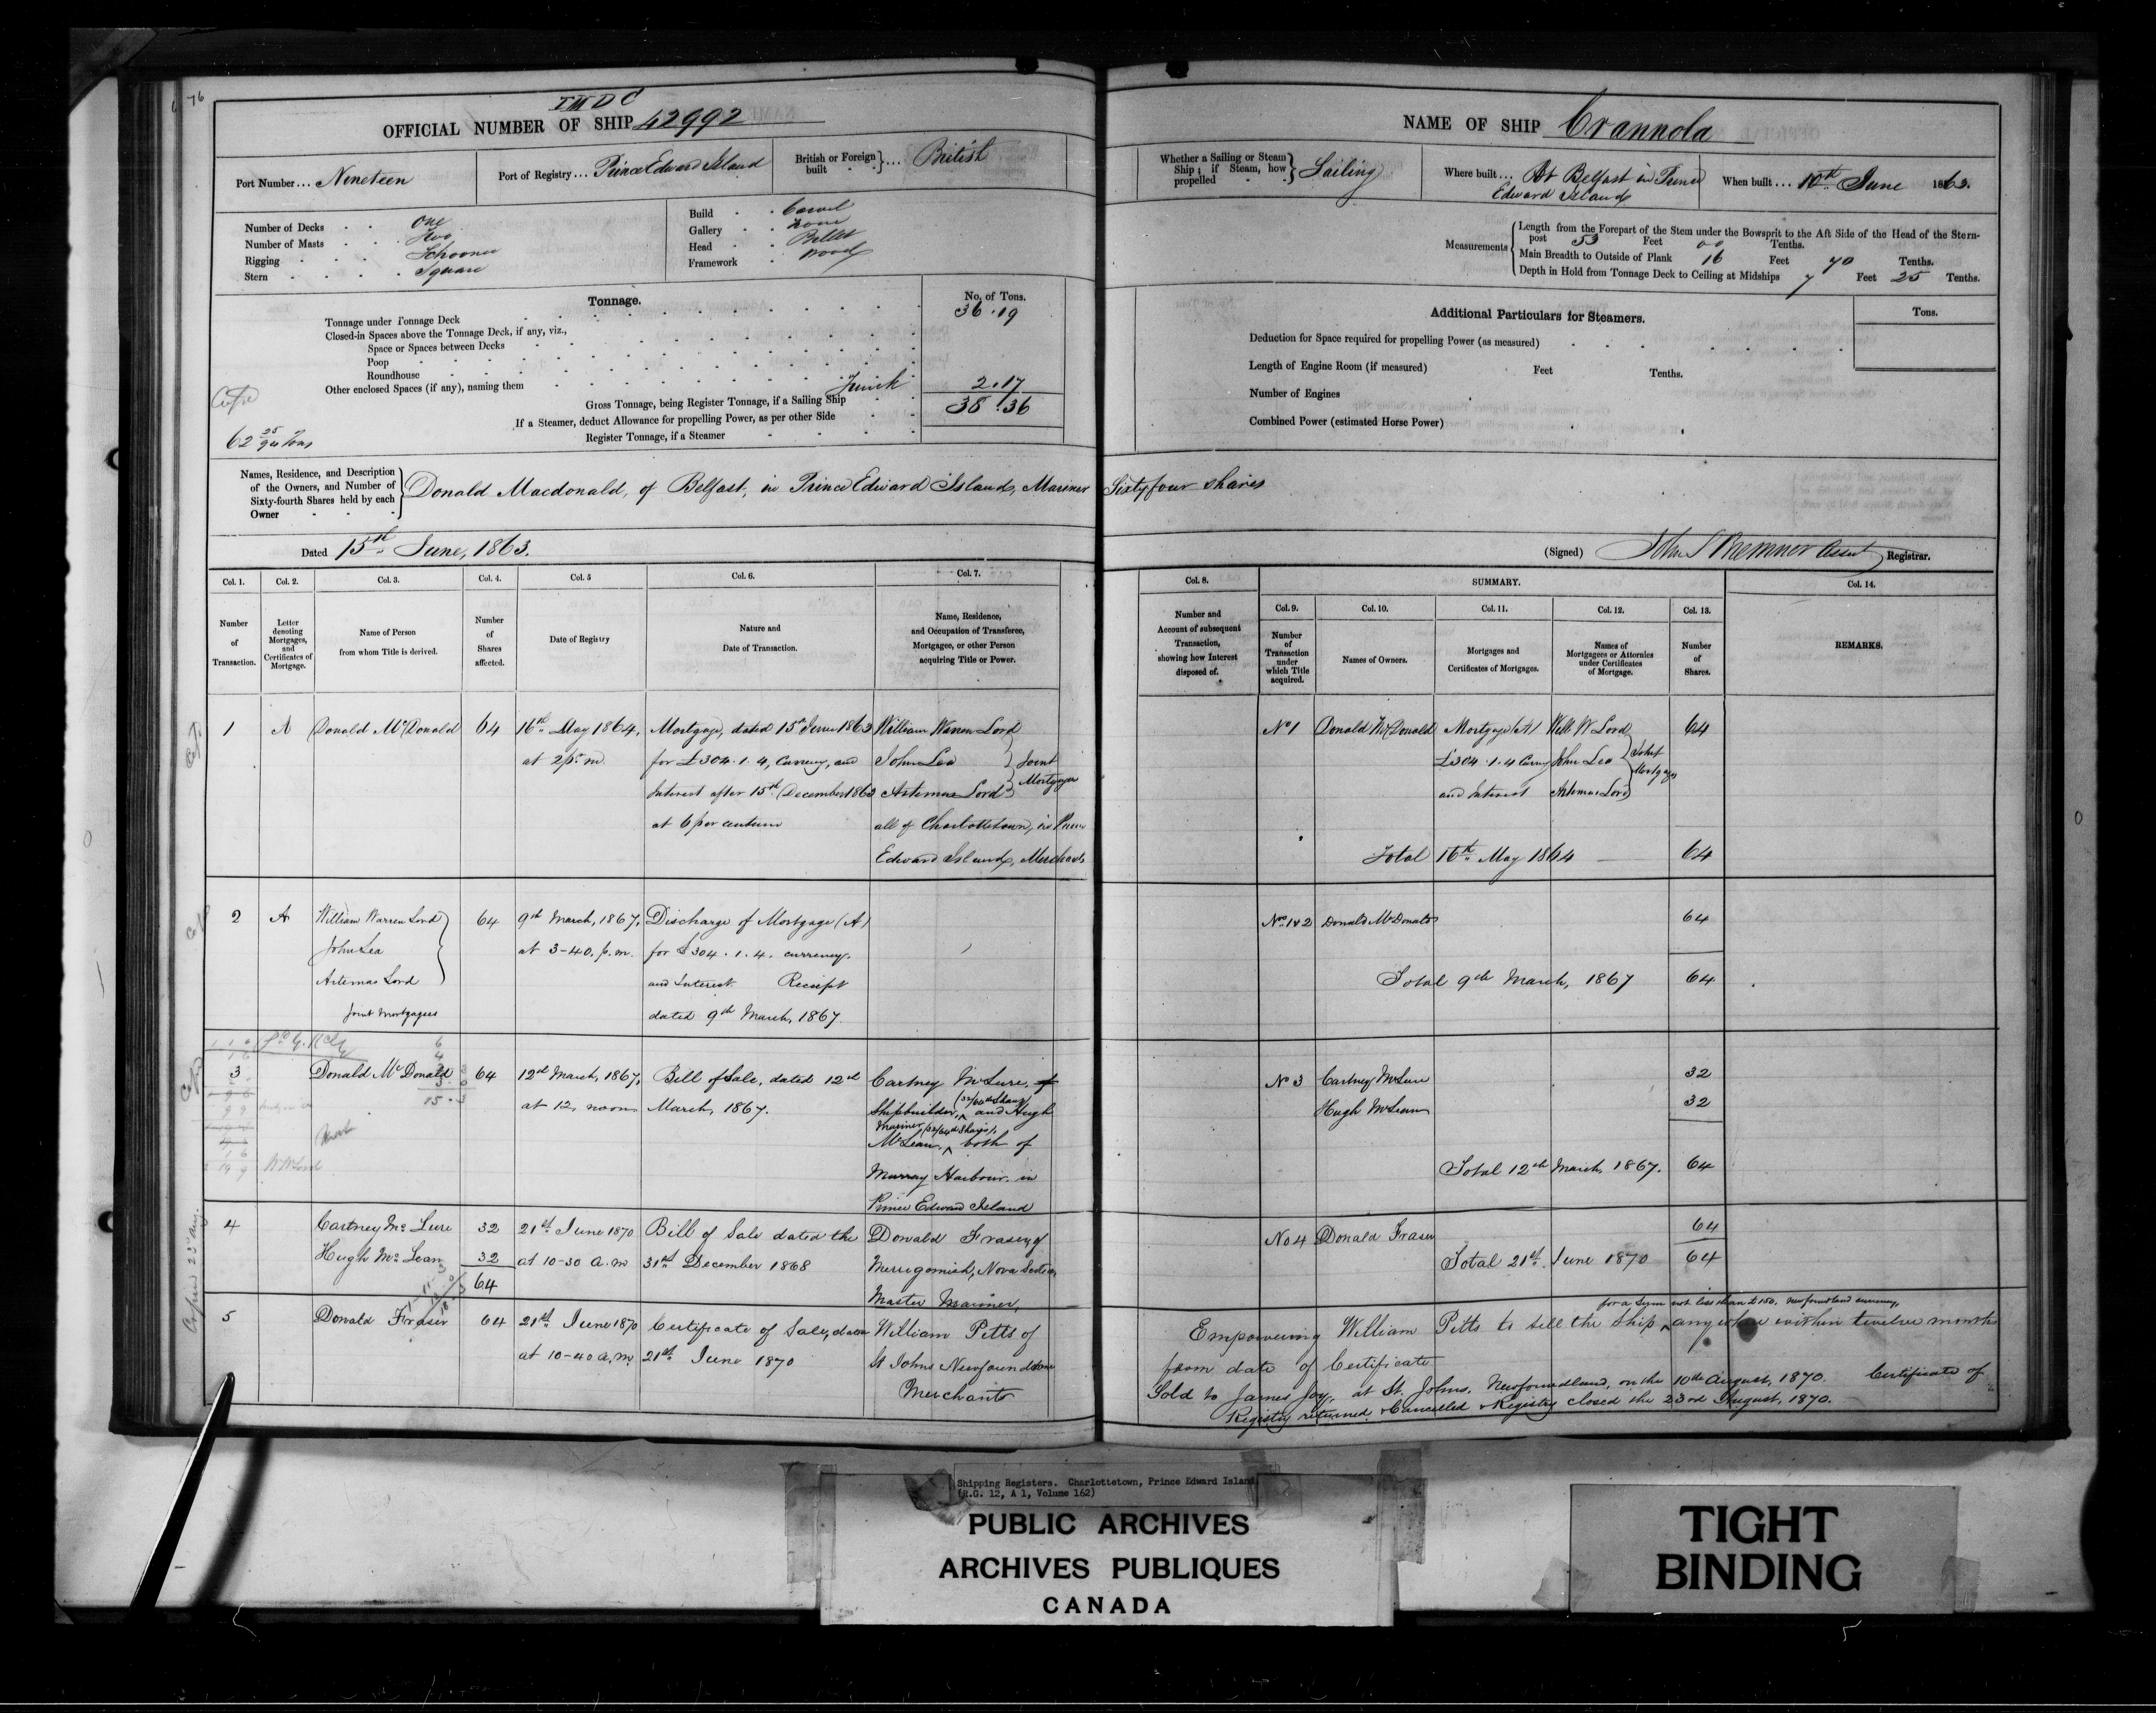 76
T W D C
OFFICIAL NUMBER OF SHIP 42992
Port Number ... Nineteen
Port of Registry ... Prince Edward Island
British or Foreign built } ... British
Number of Decks . . One
Number of Masts . . Two
Rigging . . . Schooner
Stern . . . . Square
Build . . Carvel
Gallery . . None
Head . . Billet
Framework . Wood
Tonnage.
No. of Tons.
Tonnage under Tonnage Deck 36.19
Closed-in Spaces above the Tonnage Deck, if any, viz.,
Space or Spaces between Decks
Poop
Roundhouse
Other enclosed Spaces (if any), naming them 2.17
Gross Tonnage, being Register Tonnage, if a Sailing Ship 38.36
If a Steamer, deduct Allowance for propelling Power, as per other Side
Register Tonnage, if a Steamer
62 25/94 Tons
Names, Residence, and Description of the Owners, and Number of Sixty-fourth Shares held by each Owner
Donald Macdonald, of Belfast, in Prince Edward Island, Mariner Sixty four shares
Dated 15th June, 1863.
NAME OF SHIP Crannola
Whether a Sailing or Steam Ship; if Steam, how propelled } Sailing
Where built ... At Belfast in Prince Edward Island
When built ... 10th June 1863.
Measurements
Length from the Forepart of the Stem under the Bowsprit to the Aft Side of the Head of the Sternpost 53 Feet 00 Tenths.
Main Breadth to Outside of Plank 16 Feet 70 Tenths.
Depth in Hold from Tonnage Deck to Ceiling at Midships 7 Feet 25 Tenths.
Additional Particulars for Steamers.
Tons.
Deduction for Space required for propelling Power (as measured)
Length of Engine Room (if measured) Feet Tenths.
Number of Engines
Combined Power (estimated Horse Power)
(Signed) John S Bremner Asst Registrar.
Col. 1. Col. 2. Col. 3. Col. 4. Col. 5 Col. 6. Col. 7.
Number of Transaction.
Letter denoting Mortgages, and Certificates of Mortgage.
Name of Person from whom Title is derived.
Number of Shares affected.
Date of Registry
Nature and Date of Transaction.
Name, Residence, and Occupation of Transferee, Mortgagee, or other Person acquiring Title or Power.
Col. 8. SUMMARY. Col. 14.
Col. 9. Col. 10. Col. 11. Col. 12. Col. 13.
Number and Account of subsequent Transaction, showing how Interest disposed of.
Number of Transaction under which Title acquired.
Names of Owners.
Mortgages and Certificates of Mortgages.
Names of Mortgagees or Attornies under Certificates of Mortgage.
Number of Shares.
REMARKS.
1 A Donald McDonald 64 16th May 1864, Mortgage, dated 15th June 1863 William Warren Lord
at 2 p. m. for £304.1.4, Currency, and John Lea } Joint
Interest after 15th December 1863 Artemas Lord } Mortgagees
at 6 per centum all of Charlottetown, in Prince
Edward Island, Merchants
No 1 Donald McDonald Mortgage (A) Will. W Lord 64
£304.1.4 Curry John Lea } Joint
and Interest Artemas Lord } Mortgagees
Total 16th May 1864 — 64
2 A William Warren Lord 64 9th March, 1867, Discharge of Mortgage (A)
John Lea at 3-40. p.m. for £304.1.4. currency.
Artemas Lord and Interest. Receipt
Joint Mortgagees dated 9th March, 1867.
Nos 1&2 Donald McDonald 64
Total 9th March, 1867 64
3 Donald McDonald 64 12th March, 1867, Bill of Sale, dated 12th Cartney McLure,
at 12, noon March, 1867. Shipbuilder, (32/64th Shares) and Hugh
McLean, Mariner (32/64th Shares), both of
Murray Harbour, in
Prince Edward Island
No 3 Cartney McLure 32
Hugh McLean 32
Total 12th March, 1867. 64
W W Lord
4 Cartney McLure 32 21st June 1870 Bill of Sale dated the Donald Fraser of
Hugh McLean 32 at 10-30 a.m. 31st December 1868 Merrigomish, Nova Scotia,
64 Master Mariner,
No 4 Donald Fraser 64
Total 21st June 1870 64
5 Donald Fraser 64 21st June 1870 Certificate of Sale, dated William Pitts of
at 10-40 a.m. 21st June 1870 St Johns Newfoundland
Merchant
Empowering William Pitts to sell the Ship for a sum not less than £150. Newfoundland currency, any where within twelve months
from date of Certificate
Sold to James Joy, at St. Johns, Newfoundland, on the 10th August, 1870. Certificate of
Registry returned & Cancelled & Registry closed the 23rd August, 1870.
Shipping Registers. Charlottetown, Prince Edward Island
(R.G. 12, A 1, Volume 162)
PUBLIC ARCHIVES
ARCHIVES PUBLIQUES
CANADA
TIGHT
BINDING